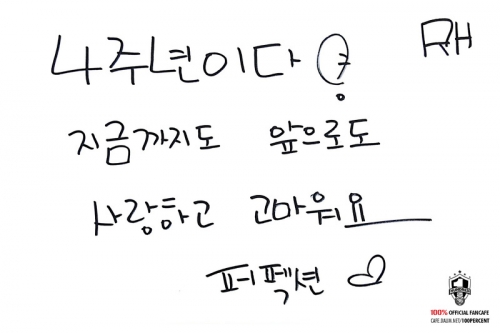 4주년이다
RH
지금까지도 앞으로도
사랑하고 고마워요
퍼펙션
100% OFFICIAL FANCAFE
CAFE.DAUM.NET/100PERCENT